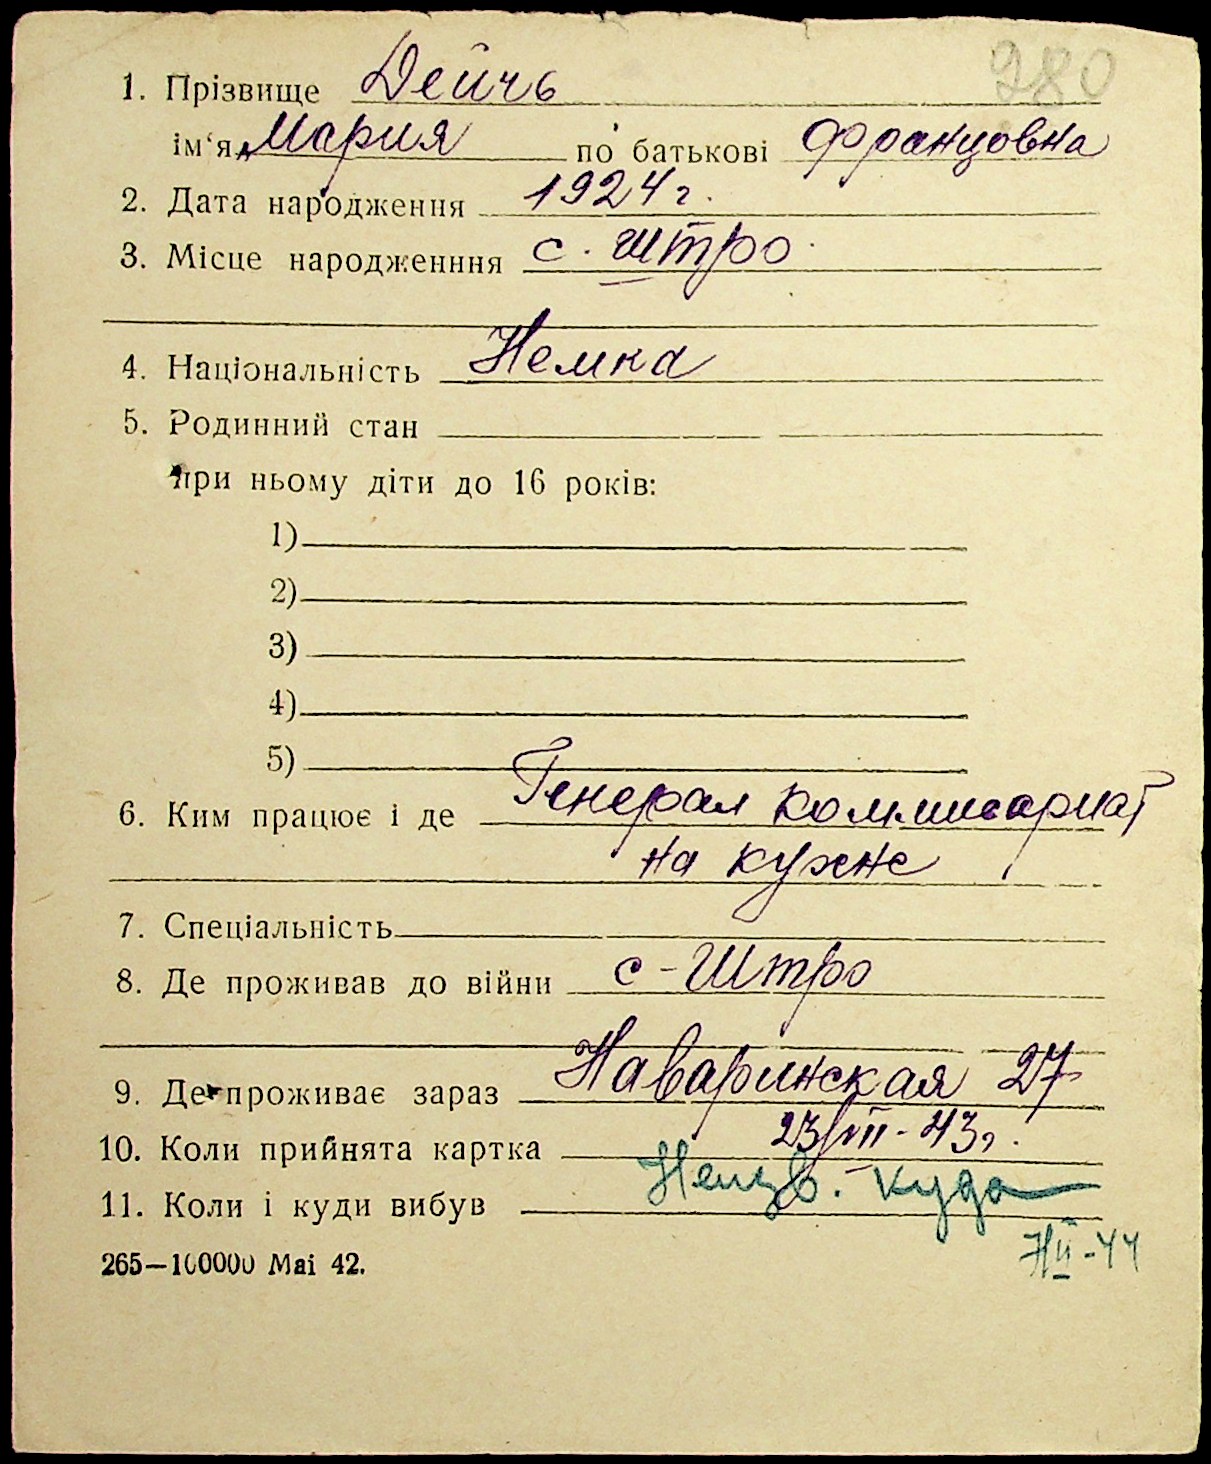 280
1. Прізвище Дейчь
ім‘я Мария по батькові Францовна
2. Дата народження 1924 г.
3. Місце народженння с. Штро
4. Національність Немка
5. Родинний стан
при ньому діти до 16 років:
1)
2)
3)
4)
5)
6. Ким працює і де Генерал коммисариат
на кухне
7. Спеціальність
8. Де проживав до війни с-Штро
9. Де проживає зараз Наваринская 27
10. Коли прийнята картка 23/VIII-43г.
11. Коли і куди вибув куда
II-44
265—100000 Mai 42.